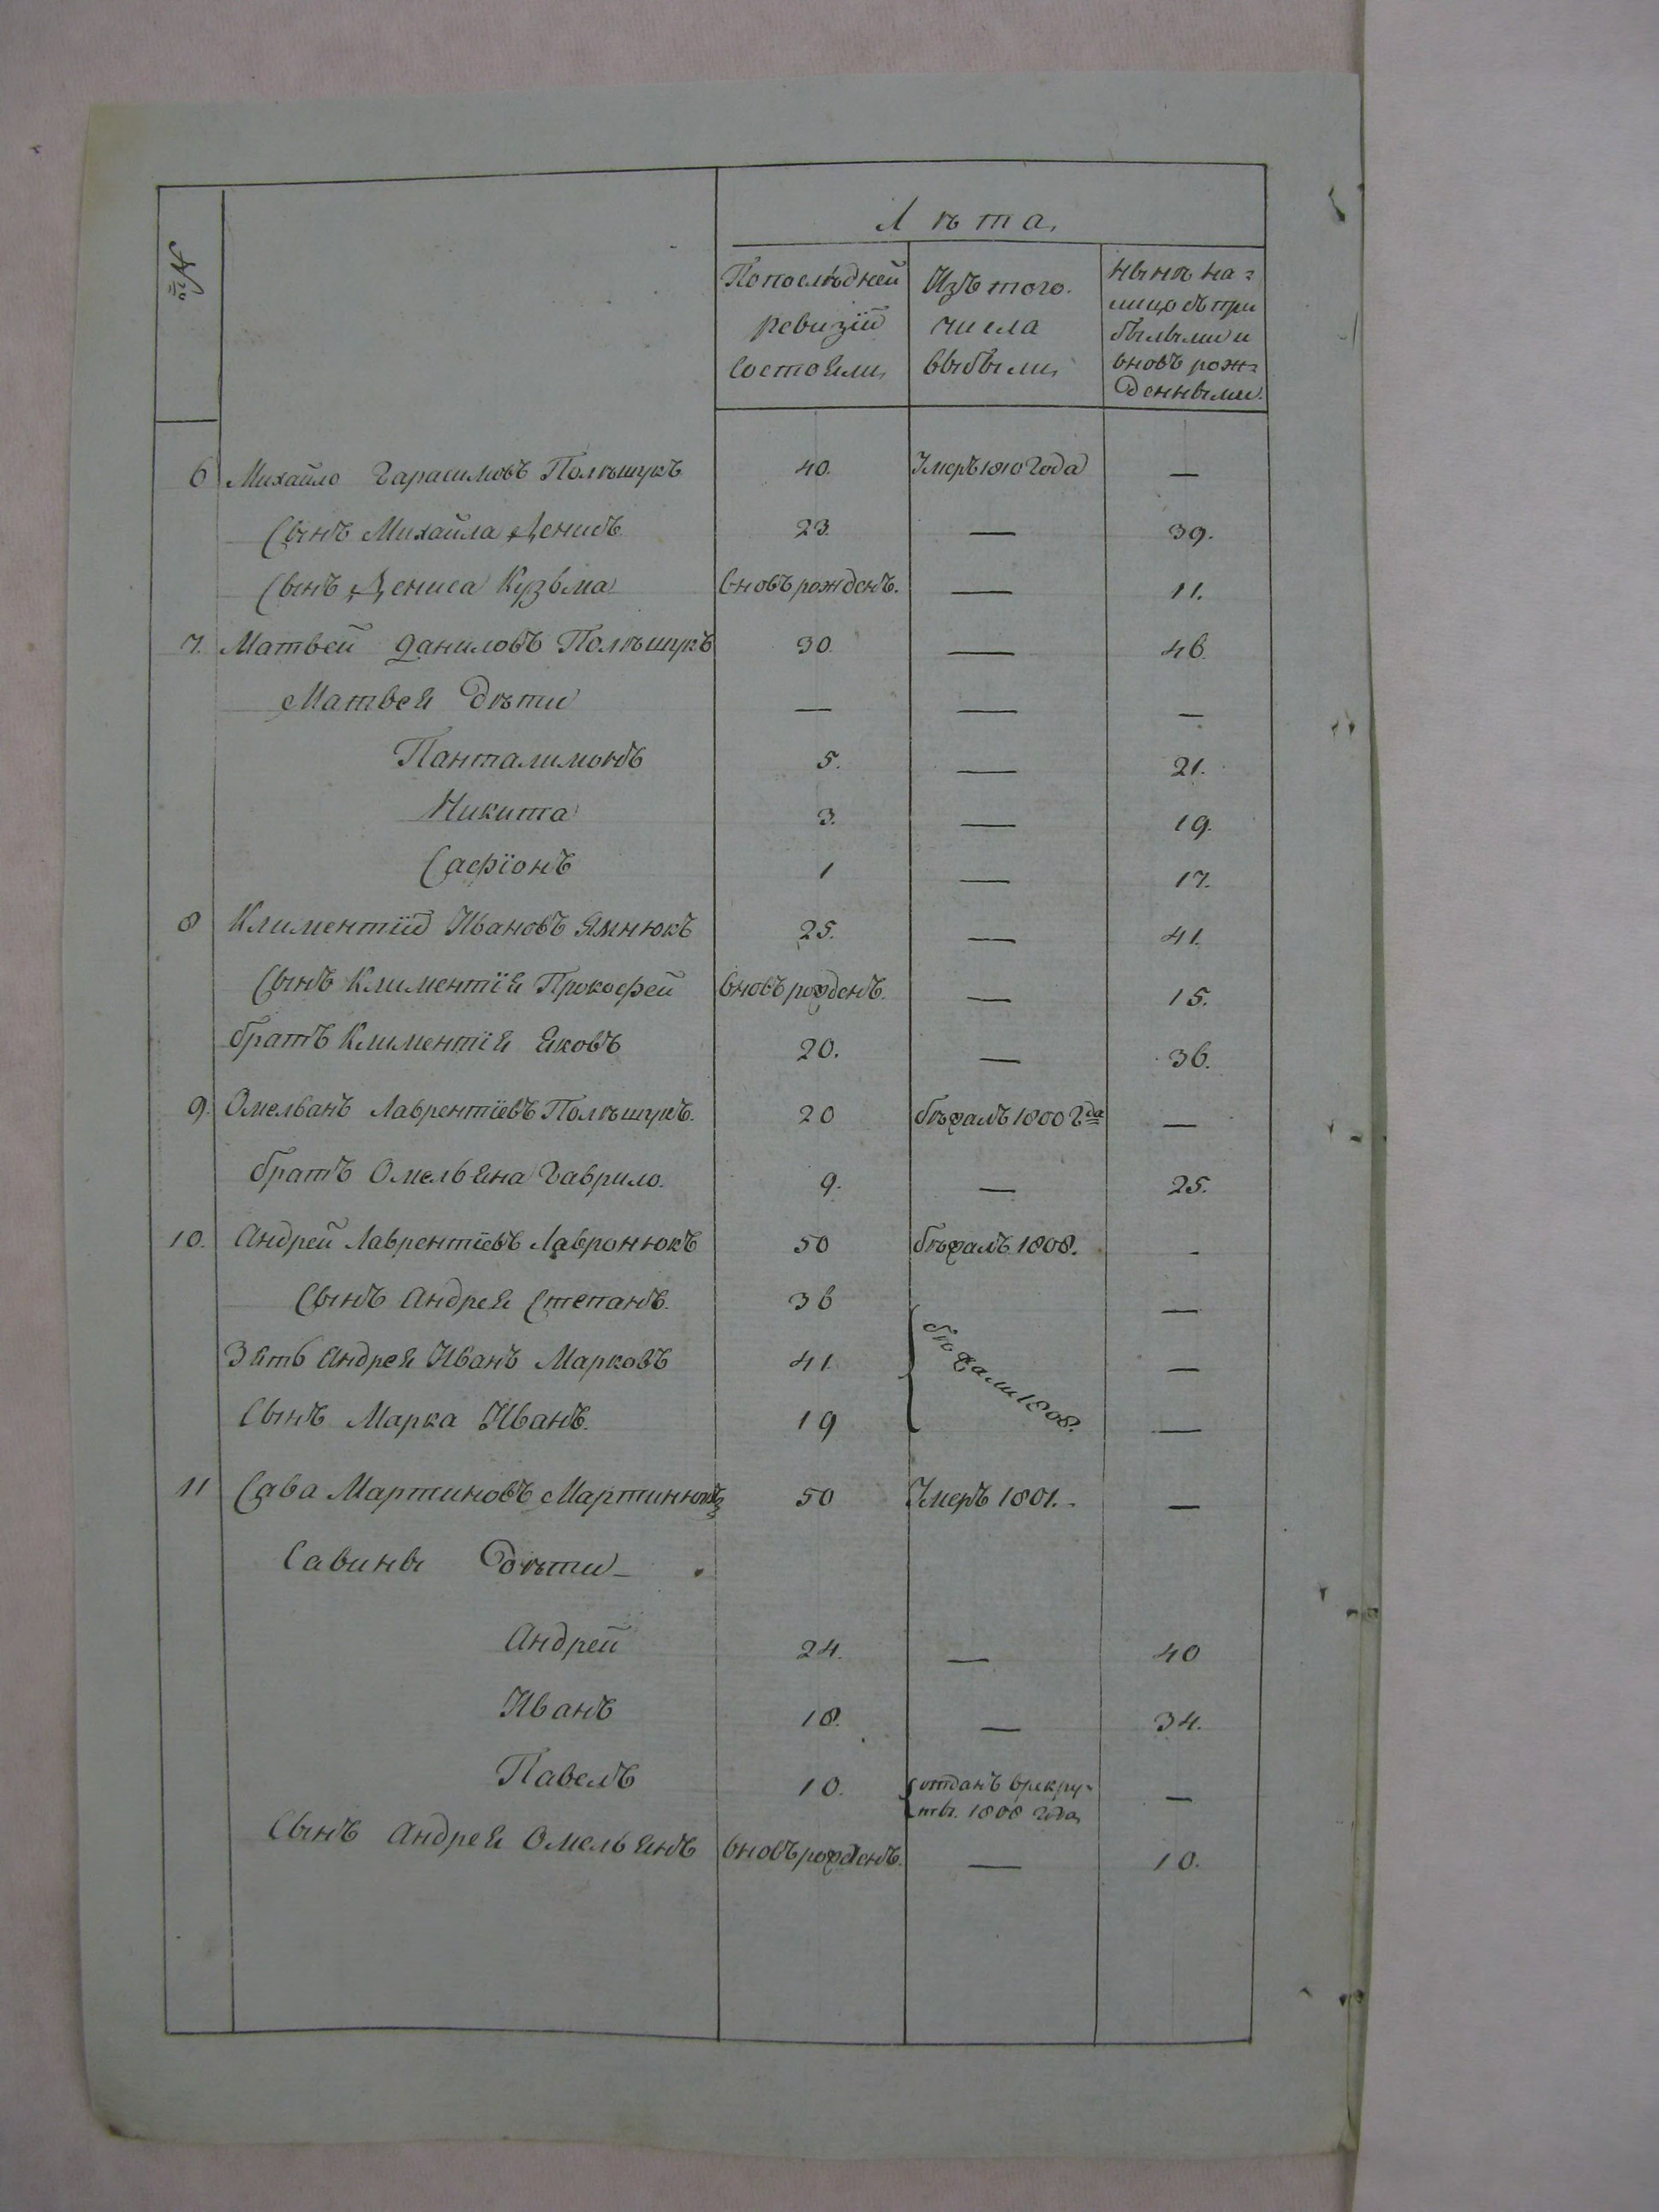 №
Лѣта,
Попослѣдней ревизіи состояли,
Изъ того числа выбыли,
нынѣ на=лицо съ при былыми и вновь рож=денными.
6 Михайло Гарасимовъ Полѣщукъ 40. Умеръ 1810 Года —
Сынъ Михайла Денисъ 23. — 39.
Сынъ Дениса Кузьма вновь рожденъ. — 11.
7. Матвей Даниловъ Полѣщукъ 30. — 46.
Матвея дѣти — — —
Панталимонъ 5. — 21.
Никита 3. — 19.
Сафіонъ 1 — 17.
8 Климентій Ивановъ Ямнюкъ 25. — 41.
Сынъ Климентія Прокофей вновь рожденъ. — 15.
братъ Климентія Яковъ 20. — 36.
9. Омельянъ Лаврентіевъ Полѣщукъ. 20 бѣжалъ 1800 Гда —
братъ Омельяна Гаврило. 9. — 25.
10. Андрей Лаврентіевъ Лавронюкъ 50 бѣжалъ 1808. -
Сынъ Андрея Степанъ. 36 —
Зять Андрея Иванъ Марковъ 41. бѣжали 1808. —
Сынъ Марка Иванъ. 19 —
11 Сава Мартиновъ Мартинюкъ 50 Умеръ 1801. —
Савины Дѣти —
Андрей 24. — 40
Иванъ 18. — 34.
Павелъ 10. отданъ врекру- —
ты. 1808 года
Сынъ Андрея Омельянъ вновь рожденъ. — 10.